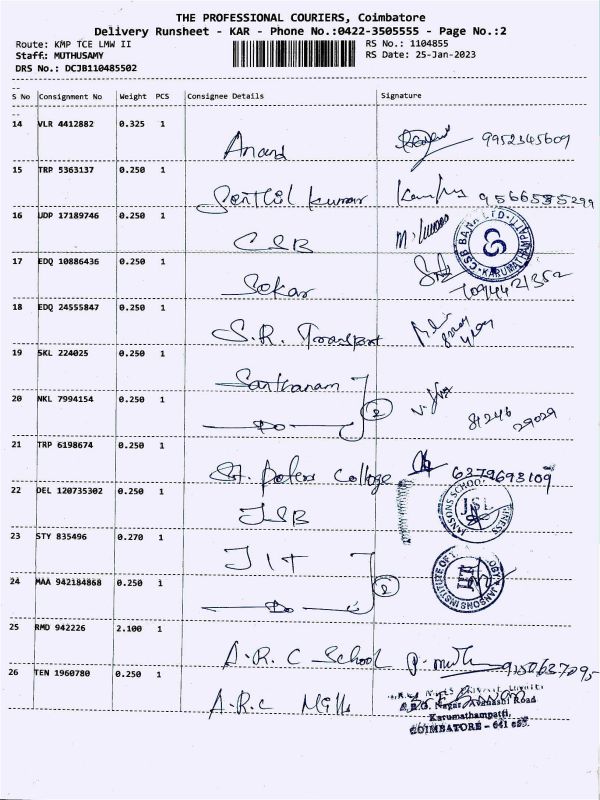 THE PROFESSIONAL COURIERS, Coimbatore
Delivery Runsheet - KAR - Phone No.:0422-3505555 - Page No.:2
Route: KMP TCE LMW II RS No.: 1104855
Staff: MUTHUSAMY RS Date: 25-Jan-2023
DRS No.: DCJB110485502
S No Consignment No Weight PCS Consignee Details Signature
14 VLR 4412882 0.325 1
Anand 9952345609
15 TRP 5363137 0.250 1
Senthil kumar 9566585299
16 UDP 17189746 0.250 1
CSB M. Kumar CSB BANK LTD. KARUMATHAMPATTI
17 EDQ 10886436 0.250 1
Sekar 7094421352
18 EDQ 24555847 0.250 1
S.R. Transport
19 SKL 224025 0.250 1
Santhanam
20 NKL 7994154 0.250 1
Do 2 81246 29029
21 TRP 6198674 0.250 1
St. Peters College 6379693109
22 DEL 120735302 0.250 1
JSB JANSONS SCHOOL BUSINESS JSB
23 STY 835496 0.270 1
JIT JANSONS INSTITUTE OF TECHNOLOGY
24 MAA 942184868 0.250 1
Do 2
25 RMD 942226 2.100 1
A.R.C School
26 TEN 1960780 0.250 1
A.R.C Mills
Nagar, Avanashi Road
Karumathampatti,
COIMBATORE - 641 659.